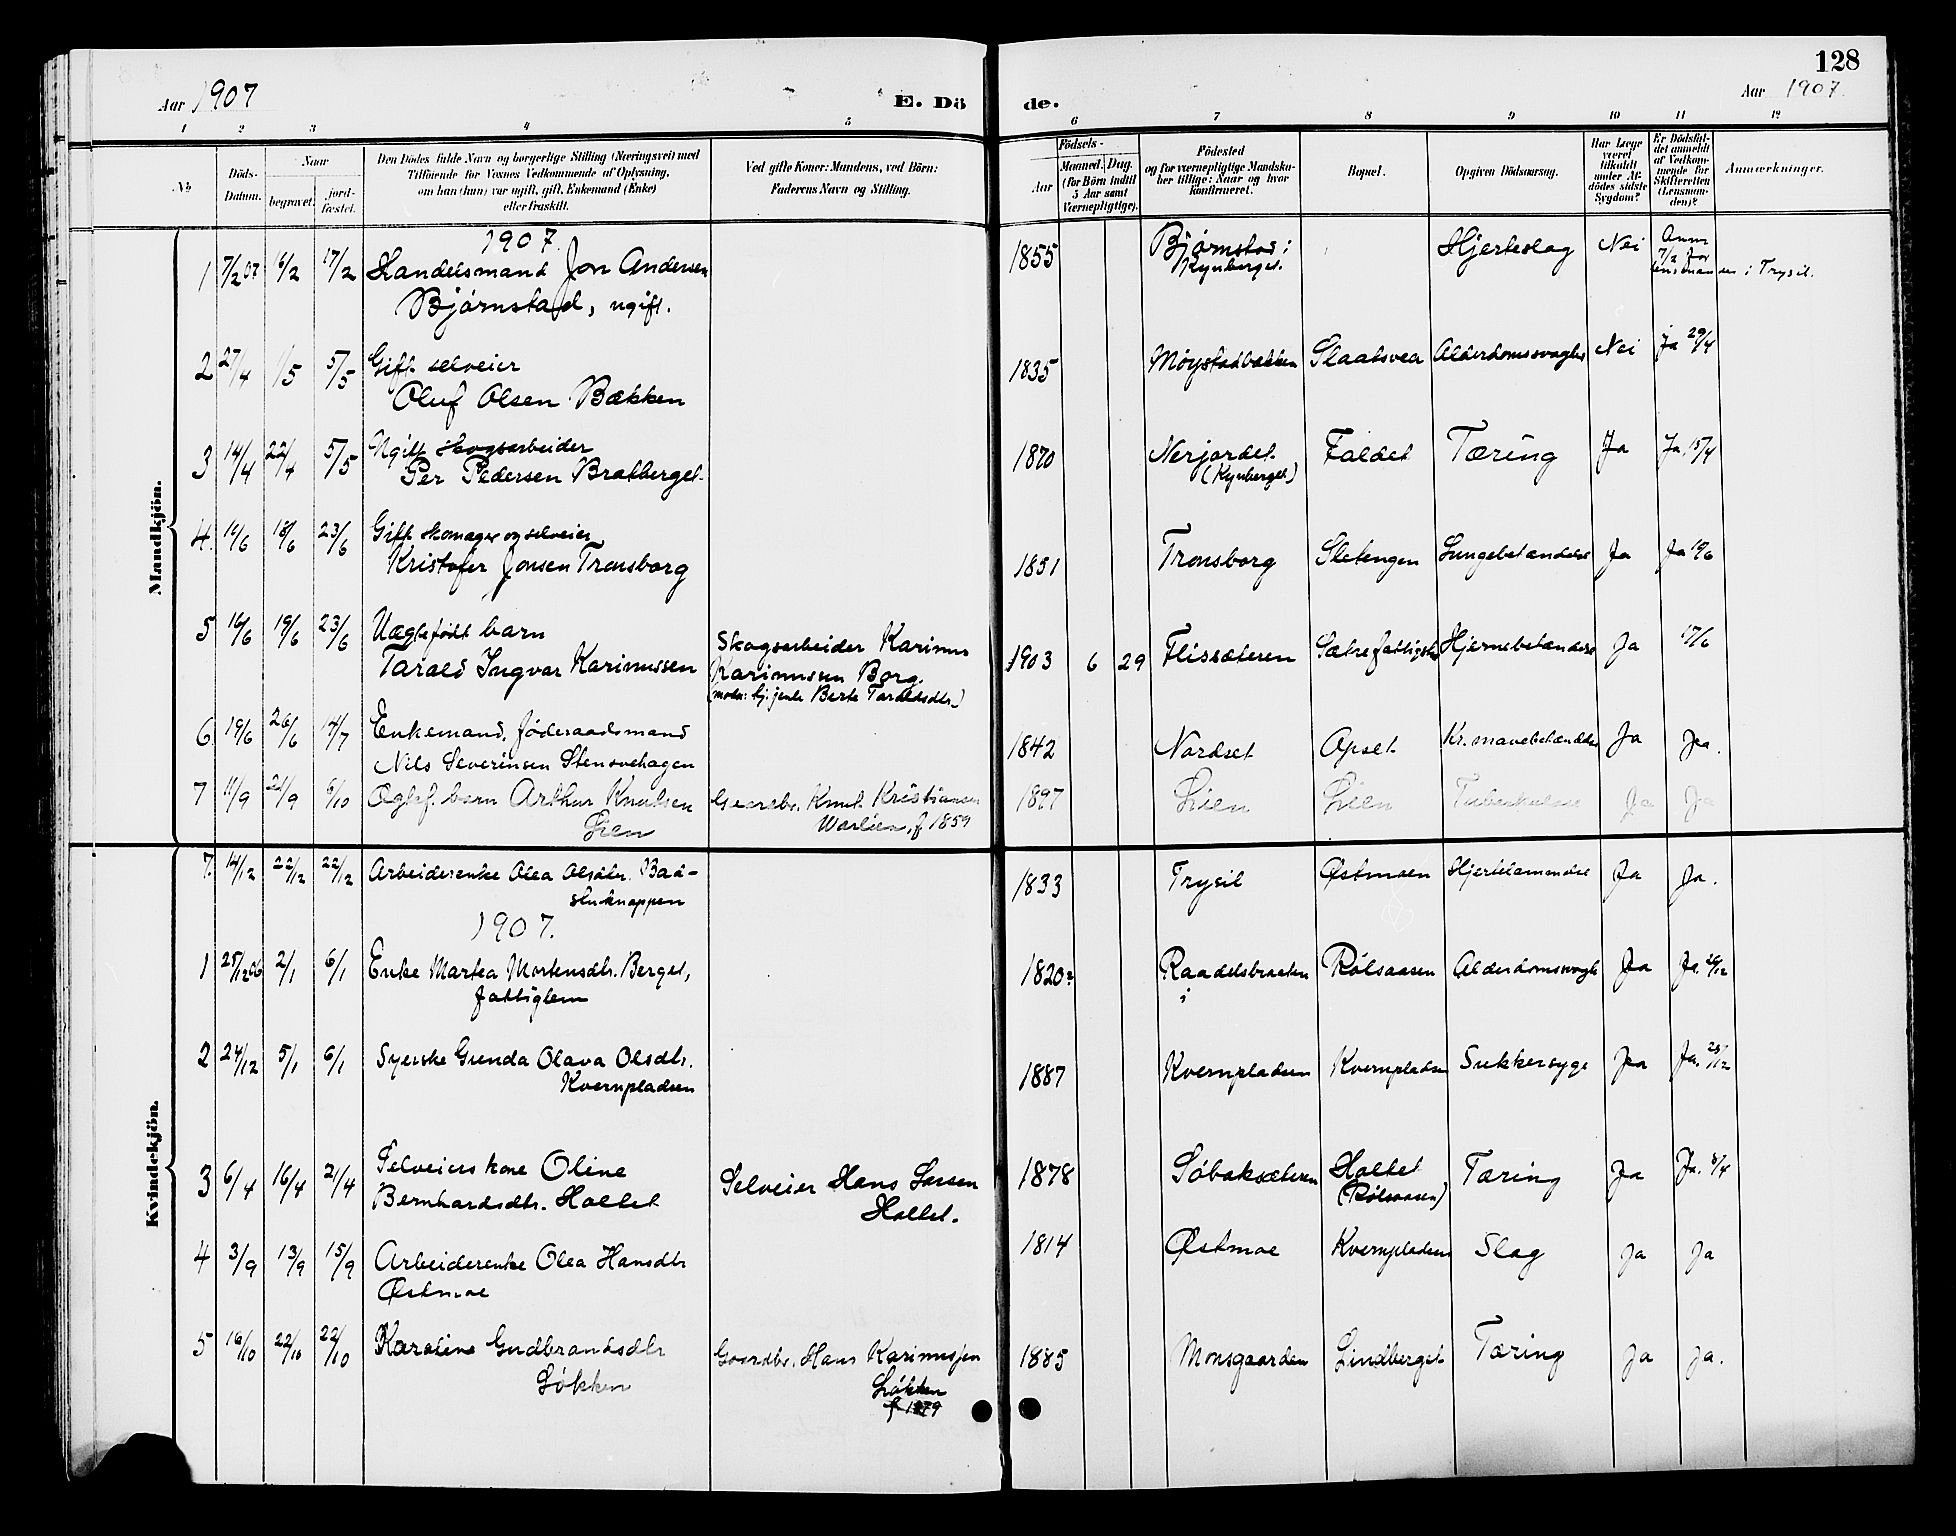 128
Aar 1907
E. Dö
de.
Aar 1907.
1 2 3 4 5 6 7 8 9 10 11 12
No
Döds-
Datum.
Naar
begravet.
jord-
fæstet.
Den Dödes fulde Navn og borgerlige Stilling (Næringsvei) med
Tilföiende for Voxnes Vedkommende af Oplysning,
om han (hun) var ugift, gift, Enkemand (Enke)
eller fraskilt.
Ved gifte Koner: Mandens, ved Börn:
Faderens Navn og Stilling.
Födsels-
Aar
Maaned. Dag.
(for Börn indtil
5 Aar samt
Værnepligtige).
Födested
og for værnepligtige Mandska-
ber tillige: Naar og hvor
konfirmeret.
Bopæl.
Opgiven Dödsaarsag.
Har Læge
været
tilkaldt
under Af-
dödes sidste
Sygdom?
Er Dödsfal-
det anmeldt
af Vedkom-
mende for
Skifteretten
(Lensman-
den)?
Anmærkninger.
Mandkjön.
1907.
1 7/2 07 16/2 17/2 Handelsmand Jon Andersen
Bjørnstad, ugift.
1855 Bjørnstad i
Kynberget.
Hjerteslag Nei Anm
7/2 for
lensmannen i Trysil.
2 27/4 1/5 5/5 Gift selveier
Oluf Olsen Bækken
1835 Møystadbækken Slaatsvea Alderdomssvaghed Nei Ja 29/4
3 14/4 22/4 5/5 Ugift skogsarbeider
Per Pedersen Bratberget
1870 Nerjordet
(Kynberget)
Faldet Tæring Ja Ja 15/4
4. 11/6 18/6 23/6 Gift skomager og selveier
Kristofer Jonsen Tronsborg
1851 Tronsborg Sletengen Lungebetændelse Ja Ja 19/6
5 16/6 19/6 23/6 Uægtefødt barn
Tarald Ingvar Karinussen
Skogsarbeider Karinus
Karinussen Borg.
(moder: tj. jente Berte Taraldsdtr.)
1903 6 29 Flissæteren Sætre fattigsh. Hjernebetændelse Ja 17/6
6. 19/6 26/6 14/7 Enkemand, føderaadsmand
Nils Severinsen Stensvehagen
1842 Nordset Opset Kr. mavebetændelse Ja Ja.
7 11/9 21/9 6/10 Ægtef. barn Arthur Knutsen
Lien
Gaardbr. Knut Kristiansen
Warlien, f 1859
1897 Lien Lien Tuberkulose Ja Ja
Kvindekjön.
7. 14/12 22/12 22/12 Arbeiderenke Olea Olsdtr. Baa-
stuknappen
1833 Trysil Østmoen Hjertelammelse Ja Ja.
1907.
1 25/12 06 2/1 6/1 Enke Martea Mortensdtr. Berget,
fattiglem
1820? Raadelsbraaten
i
Rølsaasen Alderdomssvagh Ja Ja. 26/12
2 24/12 5/1 6/1 Syerske Gunda Olava Olsdtr.
Kvernpladsen
1887 Kvernpladsen Kvernpladsen Sukkersyge Ja Ja. 28/12
3 6/4 16/4 21/4 Selveierskone Oline
Bernhardsdtr. Holtet
Selveier Hans Larsen
Holtet.
1878 Søbaksæteren Holtet
(Rølsaasen)
Tæring Ja Ja. 8/4
4 3/9 13/9 15/9 Arbeiderenke Olea Hansdtr
Østmoe
1814 Østmoe Kvernpladsen Slag Ja Ja
5 16/10 22/10 22/10 Karoline Gudbrandsdtr
Løkken
Gaardbr. Hans Karinussen
Løkken
f 1879
1885 Monsgaarden Lindberget Tæring Ja Ja.